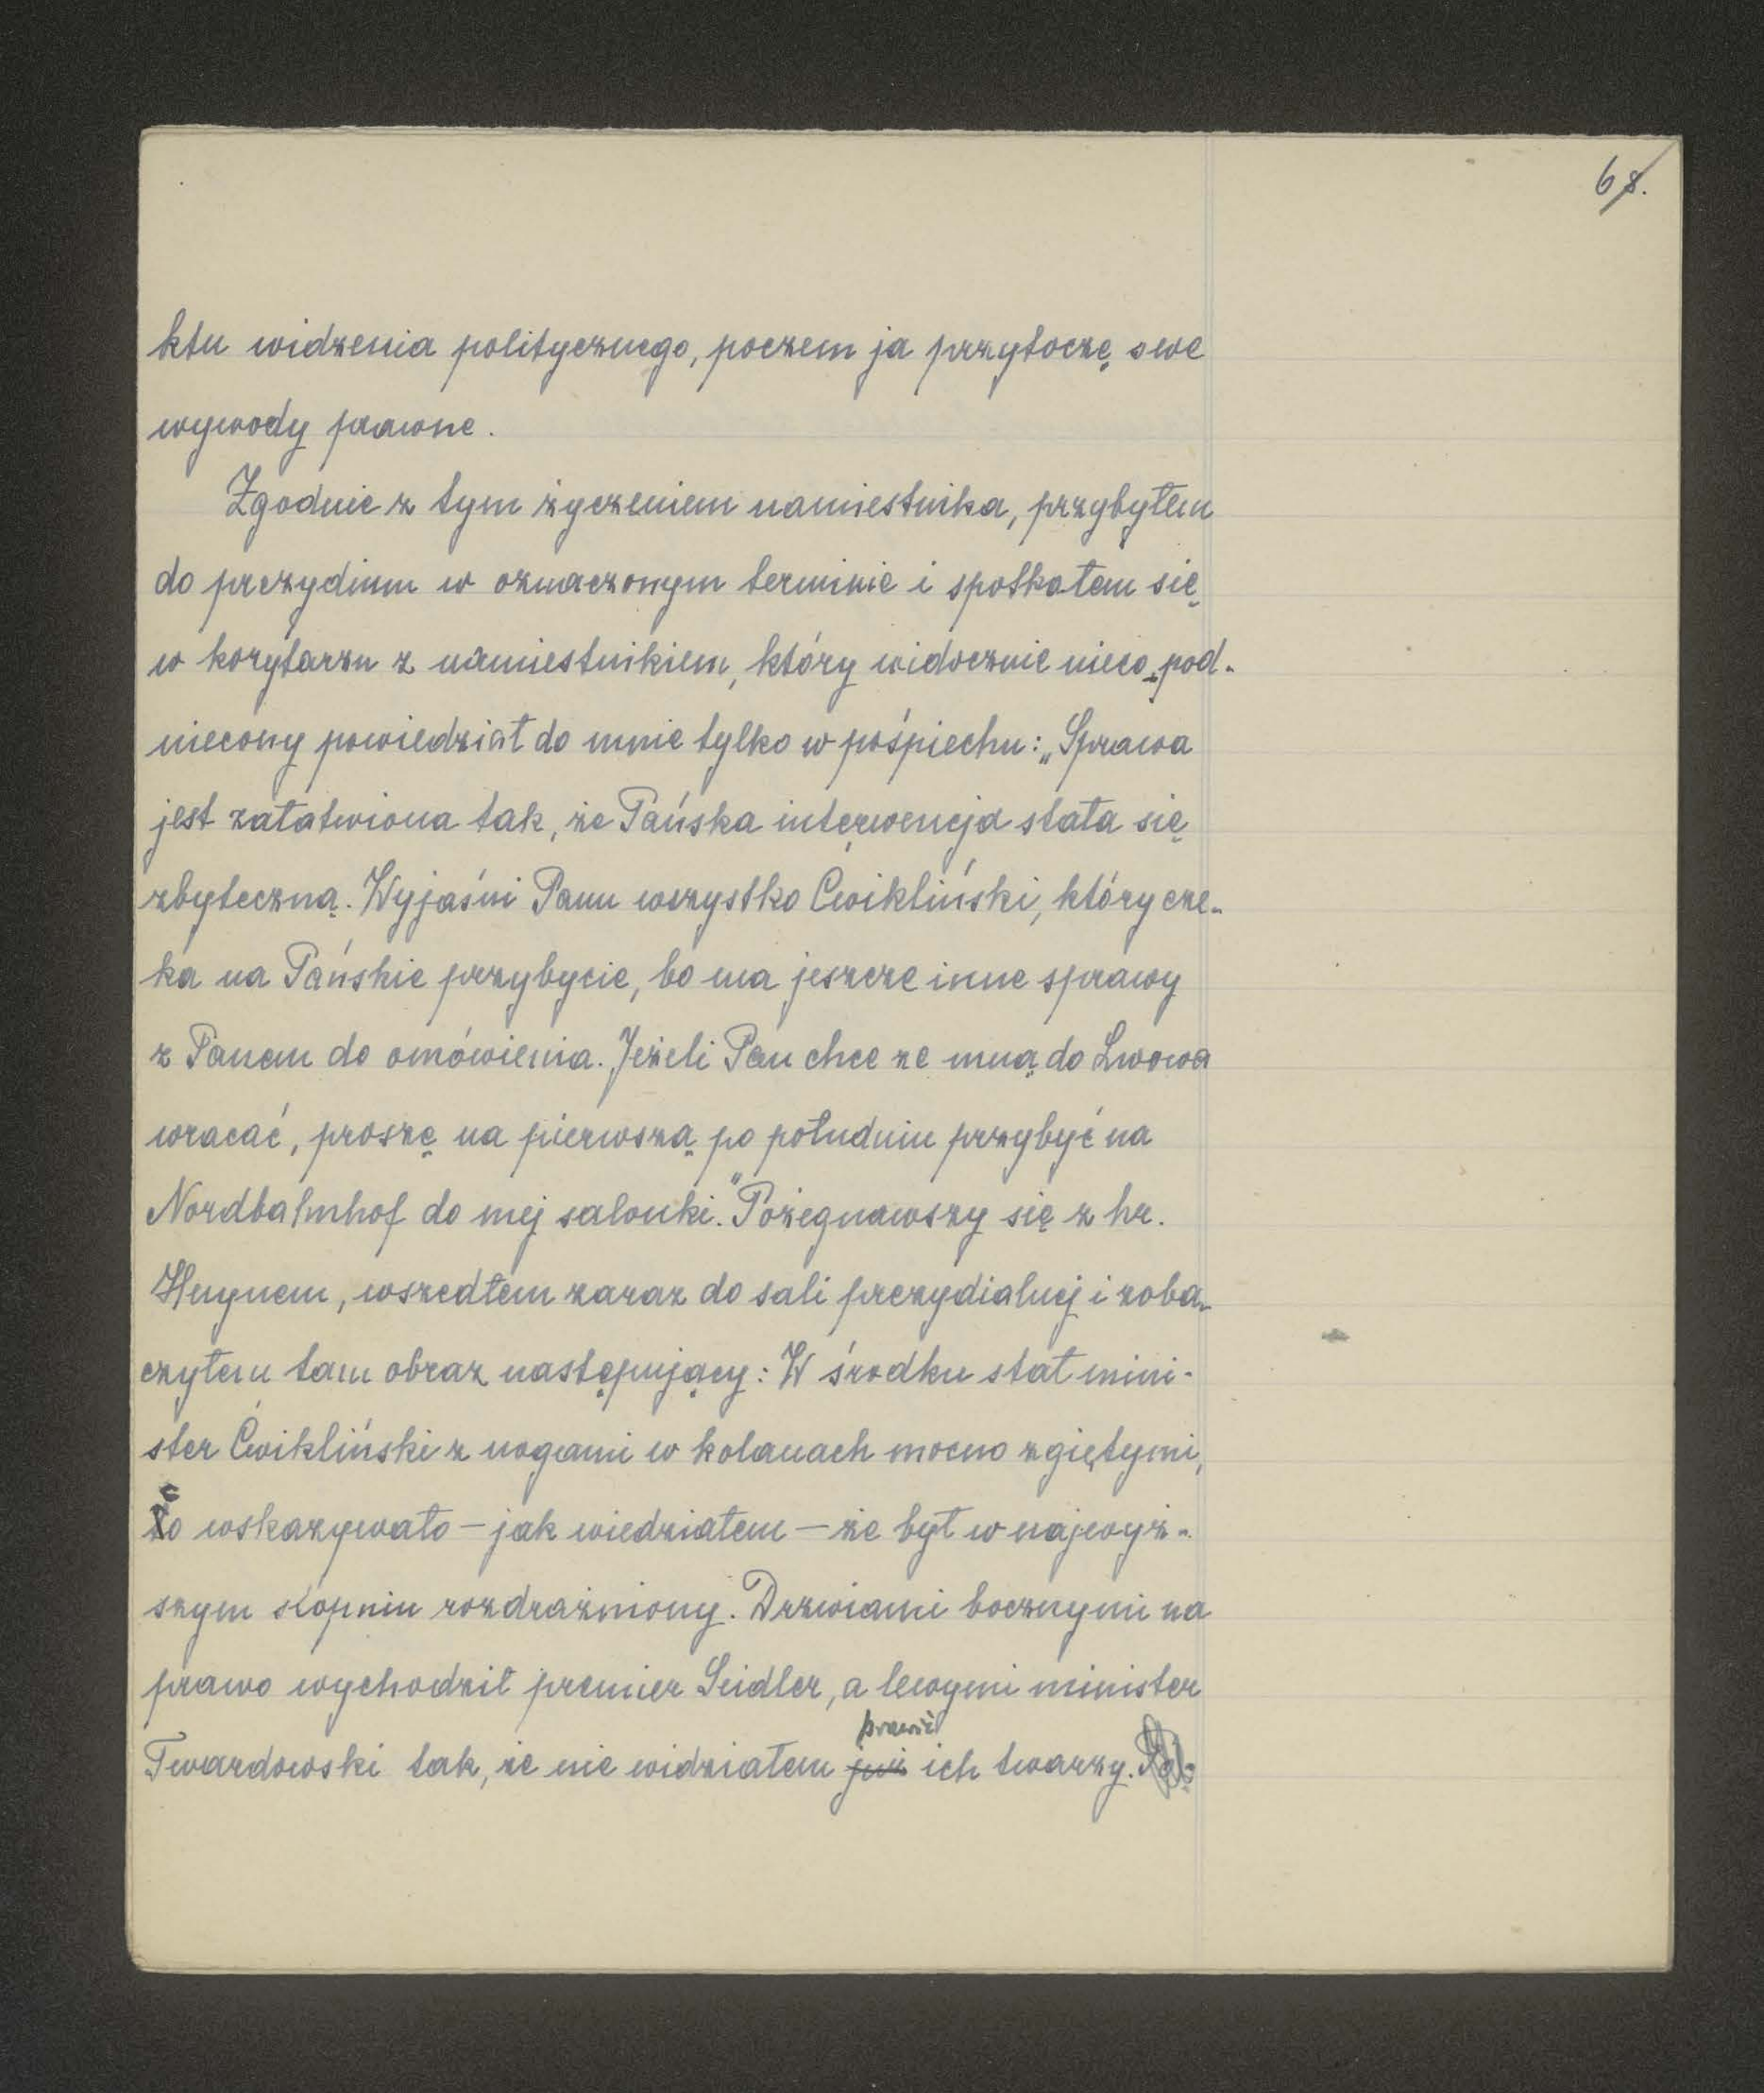 68.
ktu widzenia politycznego, poczem ja przytoczę swe
wywody prawne.
Zgodnie z tym życzeniem namiestnika, przybyłem
do prezydium w oznaczonym terminie i spotkałem się
w korytarzu z namiestnikiem, który widocznie nieco pod-
niecony powiedział do mnie tylko w pośpiechu: „Sprawa
jest załatwiona tak, że Pańska interwencja stała się
zbyteczną. Wyjaśni Panu wszystko Ćwikliński, który cze-
ka na Pańskie przybycie, bo ma jeszcze inne sprawy
z Panem do omówienia. Jeżeli Pan chce ze mną do Lwowa
wracać, proszę na pierwszą po południu przybyć na
Nordbahnhof do mej salonki." Pożegnawszy się z hr.
Huynem, wszedłem zaraz do sali prezydialnej i zoba-
czyłem tam obraz następujący: W środku stał mini-
ster Ćwikliński z nogami w kolanach mocno zgiętymi,
co wskazywało – jak wiedziałem – że był w najwyż-
szym stopniu rozdrażniony. Drzwiami bocznymi na
prawo wychodził premier Seidler, a lewymi minister
prawie
Twardowski tak, że nie widziałem już ich twarzy.